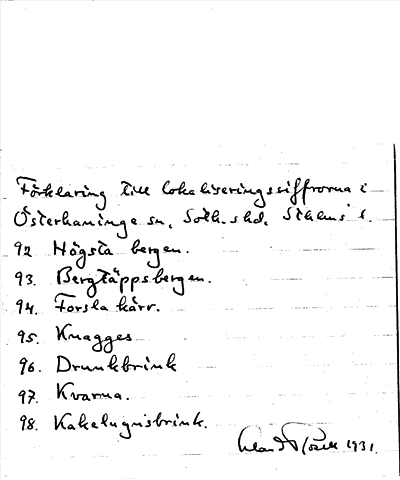 Förklaring till lokaliseringssiffrorna i
Österhaninge sn, Soth. shd. Sthlms l.
92 Högsta bergen.
93. Bergtäppsbergen.
94. Forsla kärr.
95. Knagges
96. Drunkbrink
97. Kvarna.
98. Kakelugnsbrink.
1931.